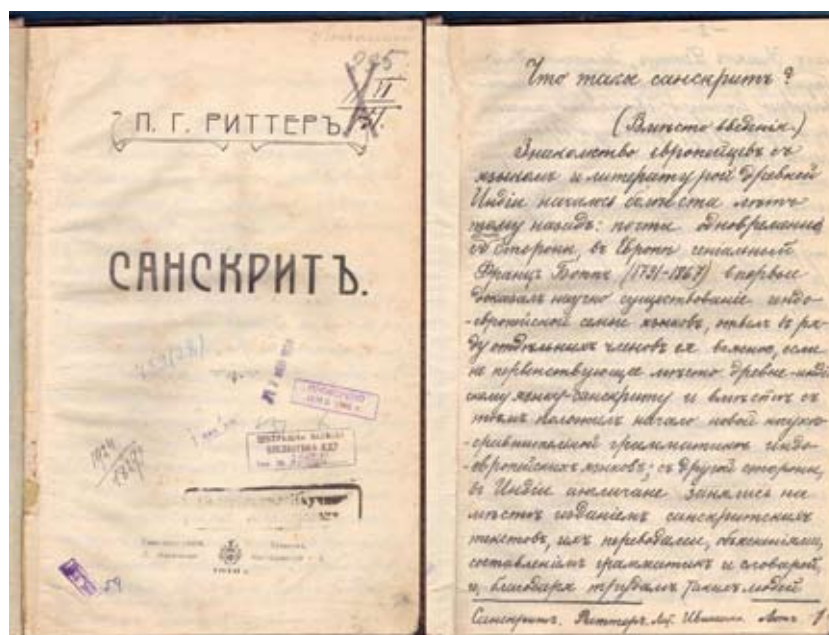 II
П. Г. РИТТЕРЪ
САНСКРИТЪ.
1924
59
Что такое санскритъ?
(Вмѣсто введенія.)
Знакомство европейцевъ съ
языкомъ и литературой древней
Индіи началось болѣе ста лѣтъ
тому назадъ: почти одновременно
съ стороны, въ Европѣ геніальный
Францъ Боппъ (1791-1867) впервые
доказалъ научно существованіе индо-
-европейской семьи языковъ, отвелъ въ ря-
ду отдѣльныхъ членовъ ея важное, если
не первенствующее мѣсто древне-индій
скому языку-санскриту и вмѣстѣ съ
тѣмъ положилъ начало новой наукѣ
сравнительной грамматикѣ индо-
-европейскихъ языковъ; съ другой стороны,
въ Индіи англичане занялись на
мѣстѣ изданіемъ санскритскихъ
текстовъ, ихъ переводами, объясненіями,
составленіемъ грамматикъ и словарей,
и, благодаря трудамъ такихъ людей
Санскритъ. Риттеръ. Лит. Иванченко. Листъ 1